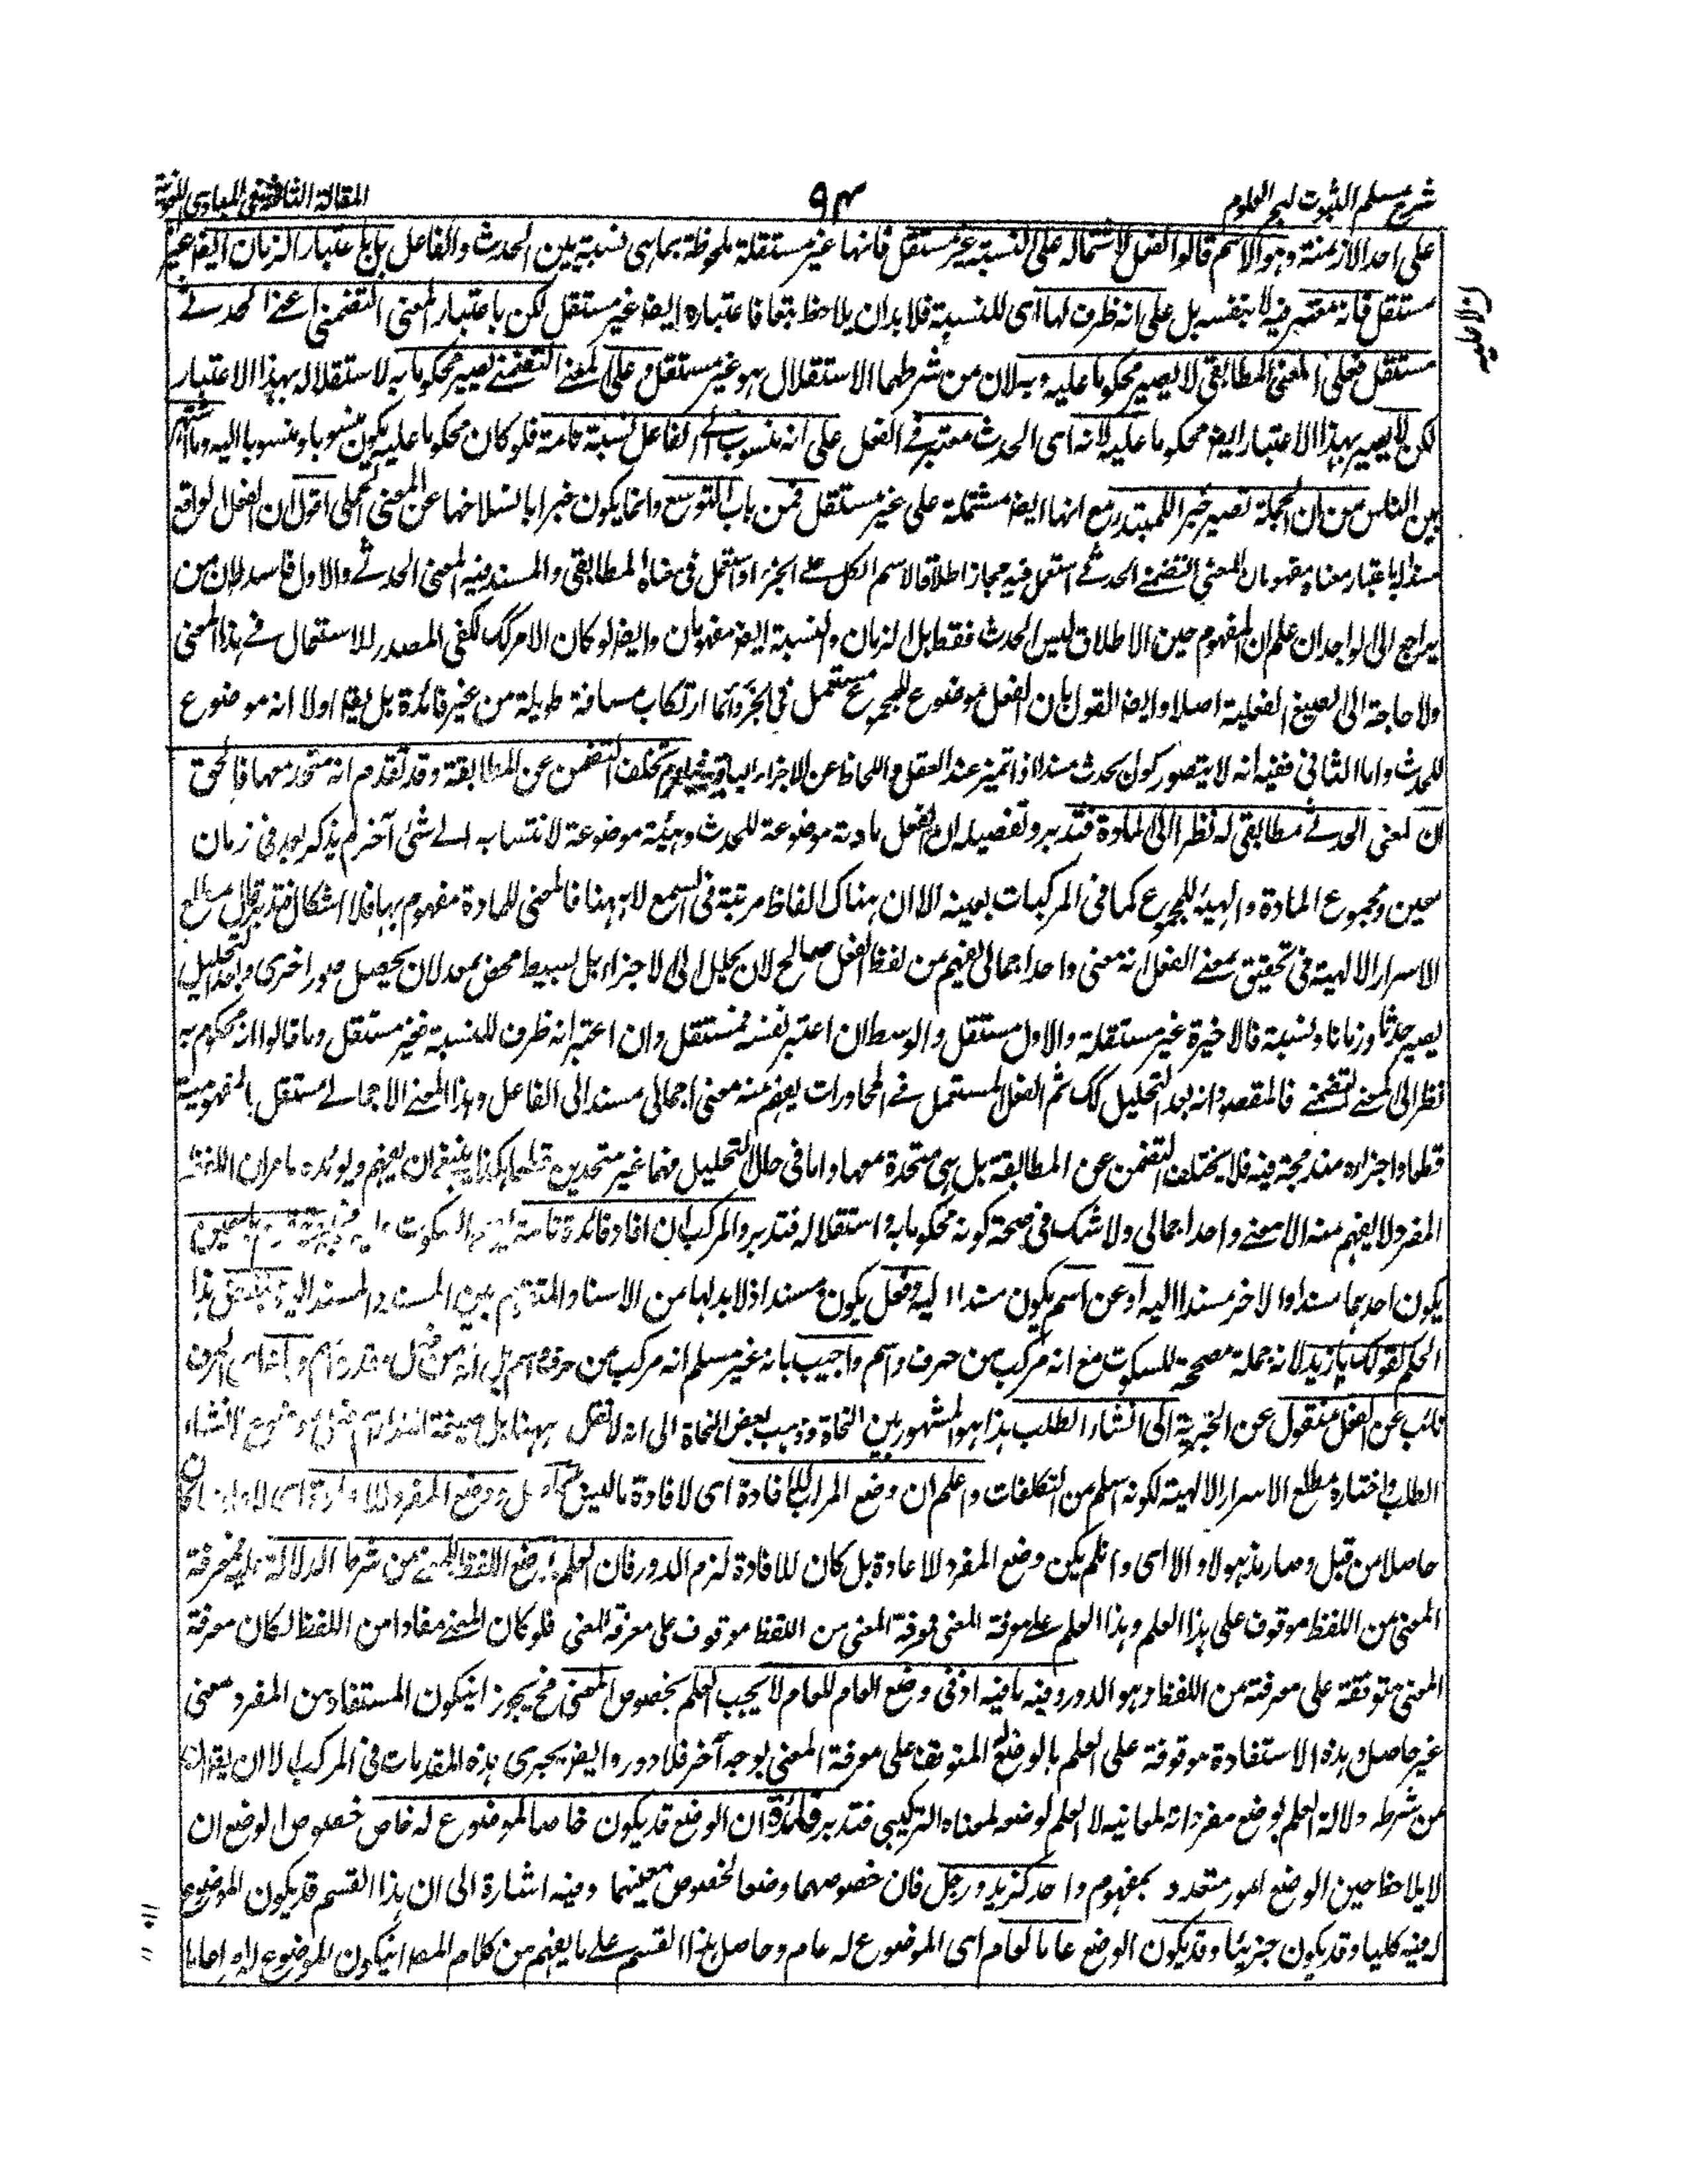 شرح مسلم الثبوت لبحر العلوم
٩٤
المقالة الثانية في المبادي اللغوية
على احد الازمنة وهو الاسم قالوا الفعل لاشتماله على النسبة غير مستقل فانها غير مستقلة ملحوظة بما هي نسبة بين الحدث والفاعل بل باعتبار الزمان ايضا غير
مستقل فانه معتبر فيه لا بنفسه بل على انه ظرف لها اى للنسبة فلا بد ان يلاحظ تبعا فاعتباره ايضا غير مستقل لكن باعتبار المعنى التضمنى اعنى الحدث
مستقل فعلى المعنى المطابقى لا يصير محكوما عليه وبه لان من شرطهما الاستقلال وهو غير مستقل وعلى المعنى التضمنى يصير محكوما به لاستقلاله بهذا الاعتبار
لكن لا يصير بهذا الاعتبار ايضا محكوما عليه لانه اى الحدث معتبر فى الفعل على انه منسوب الى الفاعل نسبة تامة فلو كان محكوما عليه يكون منسوبا ومنسوبا اليه وما اشتهر
بين الناس من ان الجملة تصير خبرا للمبتدء مع انها ايضا مشتملة على غير مستقل فمن باب التوسع وانما يكون خبرا بانسلاخها عن المعنى الجملى اقول ان الفعل الواقع
مسندا باعتبار معناه مفهومان المعنى التضمنى الحدثى استعمل فيه مجازا اطلاقا لاسم الكل على الجزء او استعمل فى معناه المطابقى والمسند فيه المعنى الحدثى والاول فاسد فان من
يراجع الى الوجدان علم ان المفهوم حين الاطلاق ليس الحدث فقط بل الزمان والنسبة ايضا مفهومان وايضا لو كان الامر كك لكفى المصدر للاستعمال فى هذا المعنى
ولا حاجة الى الصيغ الفعلية اصلا وايضا القول بان الفعل موضوع للمجموع مستعمل فى الجزء دائما ارتكاب مسافة طويلة من غير فائدة بل يقال اولا انه موضوع
للحدث واما الثانى ففيه انه لا يتصور كون الحدث مسندا اذا تميز عند العقل واللحاظ عن الاجزاء الباقية فيلزم تخلف التضمن عن المطابقة وقد تقدم انه متحد معها فالحق
ان المعنى الحدثى مطابقى له نظرا الى المادة فتدبر وتفصيله ان الفعل مادته موضوعة للحدث وهيئته موضوعة لانتسابه الى شئ آخر لم يذكر بعد فى زمان
معين ومجموع المادة والهيئة للمجموع كما فى المركبات بعينه الا ان هناك الفاظ مرتبة فى السمع لا ههنا فالمعنى للمادة مفهوم بها فلا اشكال فتدبر قال مطلع
الاسرار الالهية فى تحقيق معنى الفعل انه معنى واحد اجمالى يفهم من لفظ الفعل صالح لان يحلل الى الاجزاء بل بسيط محض معد لان يحصل صور اخرى وبعد التحليل
يصير حدثا وزمانا ونسبة فالاخيرة غير مستقلة والاول مستقل والوسط ان اعتبر نفسه فمستقل وان اعتبر انه ظرف للنسبة فغير مستقل وما قالوا انه محكوم به
نظرا الى المعنى التضمنى فالمقصود انه بعد التحليل كك ثم الفعل المستعمل فى المحاورات يفهم منه معنى اجمالى مسند الى الفاعل وهذا المعنى الاجمالى مستقل بالمفهومية
قطعا واجزاءه مندمجة فيه فلا يختلف التضمن عن المطابقة بل هى متحدة معها واما فى حال التحليل فهما غير متحدين قطعا هكذا ينبغى ان يفهم ويؤيده ما مر ان اللفظ
المفرد لا يفهم منه الا معنى واحد اجمالى ولا شك فى صحة كونه محكوما به واستقلاله فتدبر والمركب ان افاد فائدة تامة السكوت
يكون احدهما مسندا والاخر مسندا اليه او عن اسم يكون مسندا اليه وفعل يكون مسندا اذ لا بد لها من الاسناد المتقوم بين المسند والمسند اليه ونقض هذا
الحكم بقولك يا زيد لانه جملة مصححة للسكوت مع انه مركب من حرف واسم واجيب بانه غير مسلم انه مركب من حرف واسم بل انه من فعل مقدر واسم
نائب عن الفعل منقول عن الخبرية الى انشاء الطلب هذا هو المشهور بين النحاة وذهب بعض النحاة الى انه لا نقل ههنا بل صيغة النداء لانشاء
الطلب واختاره مطلع الاسرار الالهية لكونه اسلم من التكلفات واعلم ان وضع المركب للافادة اى لافادة ما ليس بحاصل ووضع المفرد للاعادة
حاصلا من قبل وصار مذهولا والا اى وان لم يكن وضع المفرد للاعادة بل كان للافادة لزم الدور فان العلم بوضع اللفظ للمعنى من شرط الدلالة عليه فمعرفة
المعنى من اللفظ موقوف على هذا العلم وهذا العلم على معرفة المعنى فمعرفة المعنى من اللفظ موقوف على معرفة المعنى فلو كان المعنى مفادا من اللفظ لكان معرفة
المعنى متوقفة على معرفته من اللفظ وهو الدور وفيه ما فيه اذ فى وضع العام للعام لا يجب العلم بخصوص المعنى فح يجوز ان يكون المستفاد من المفرد معنى
غير حاصل وهذه الاستفادة موقوفة على العلم بالوضع المتوقف على معرفة المعنى بوجه آخر فلا دور وايضا يجرى هذه المقدمات فى المركب الا ان يقال ان
من شرطه دلالة العلم بوضع مفرداته لمعانيه لا العلم لوضعه لمعناه التركيبى فتدبر فائدة ان الوضع قد يكون خاصا لموضوع له خاص خصوص الوضع ان
لا يلاحظ حين الوضع امور متعددة بمفهوم واحد كزيد ورجل فان خصوصهما وضعا لخصوص معينهما وفيه اشارة الى ان هذا القسم قد يكون الموضوع
له فيه كليا وقد يكون جزئيا وقد يكون الوضع عاما لعام اى الموضوع له عام وحاصل هذا القسم على ما يفهم من كلام المصـ ان يكون الموضوع له امرا عاما